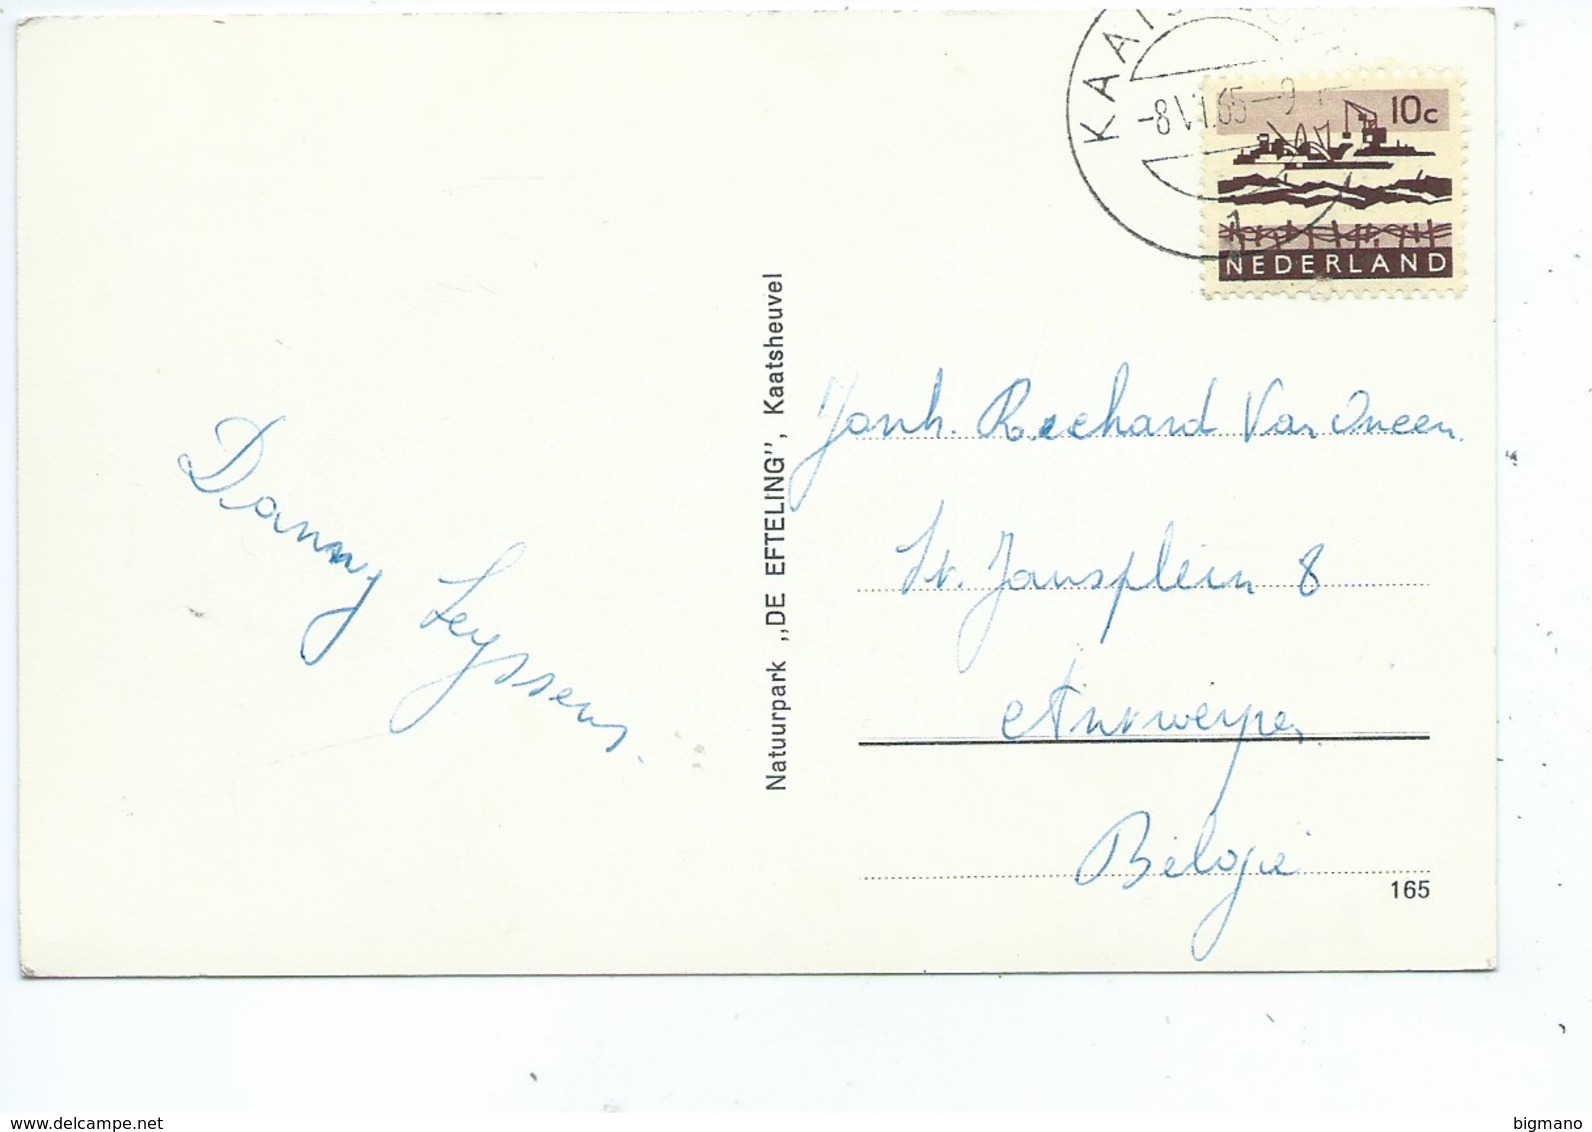 KAATS
-8 VI.65-9
10c
1
NEDERLAND
Natuurpark „DE EFTELING", Kaatsheuvel
Danny
Leyssens.
Jonh. Reechard Van
St. Jansplein 8
Antwerpen
België
165
delcampe.net
bigmano